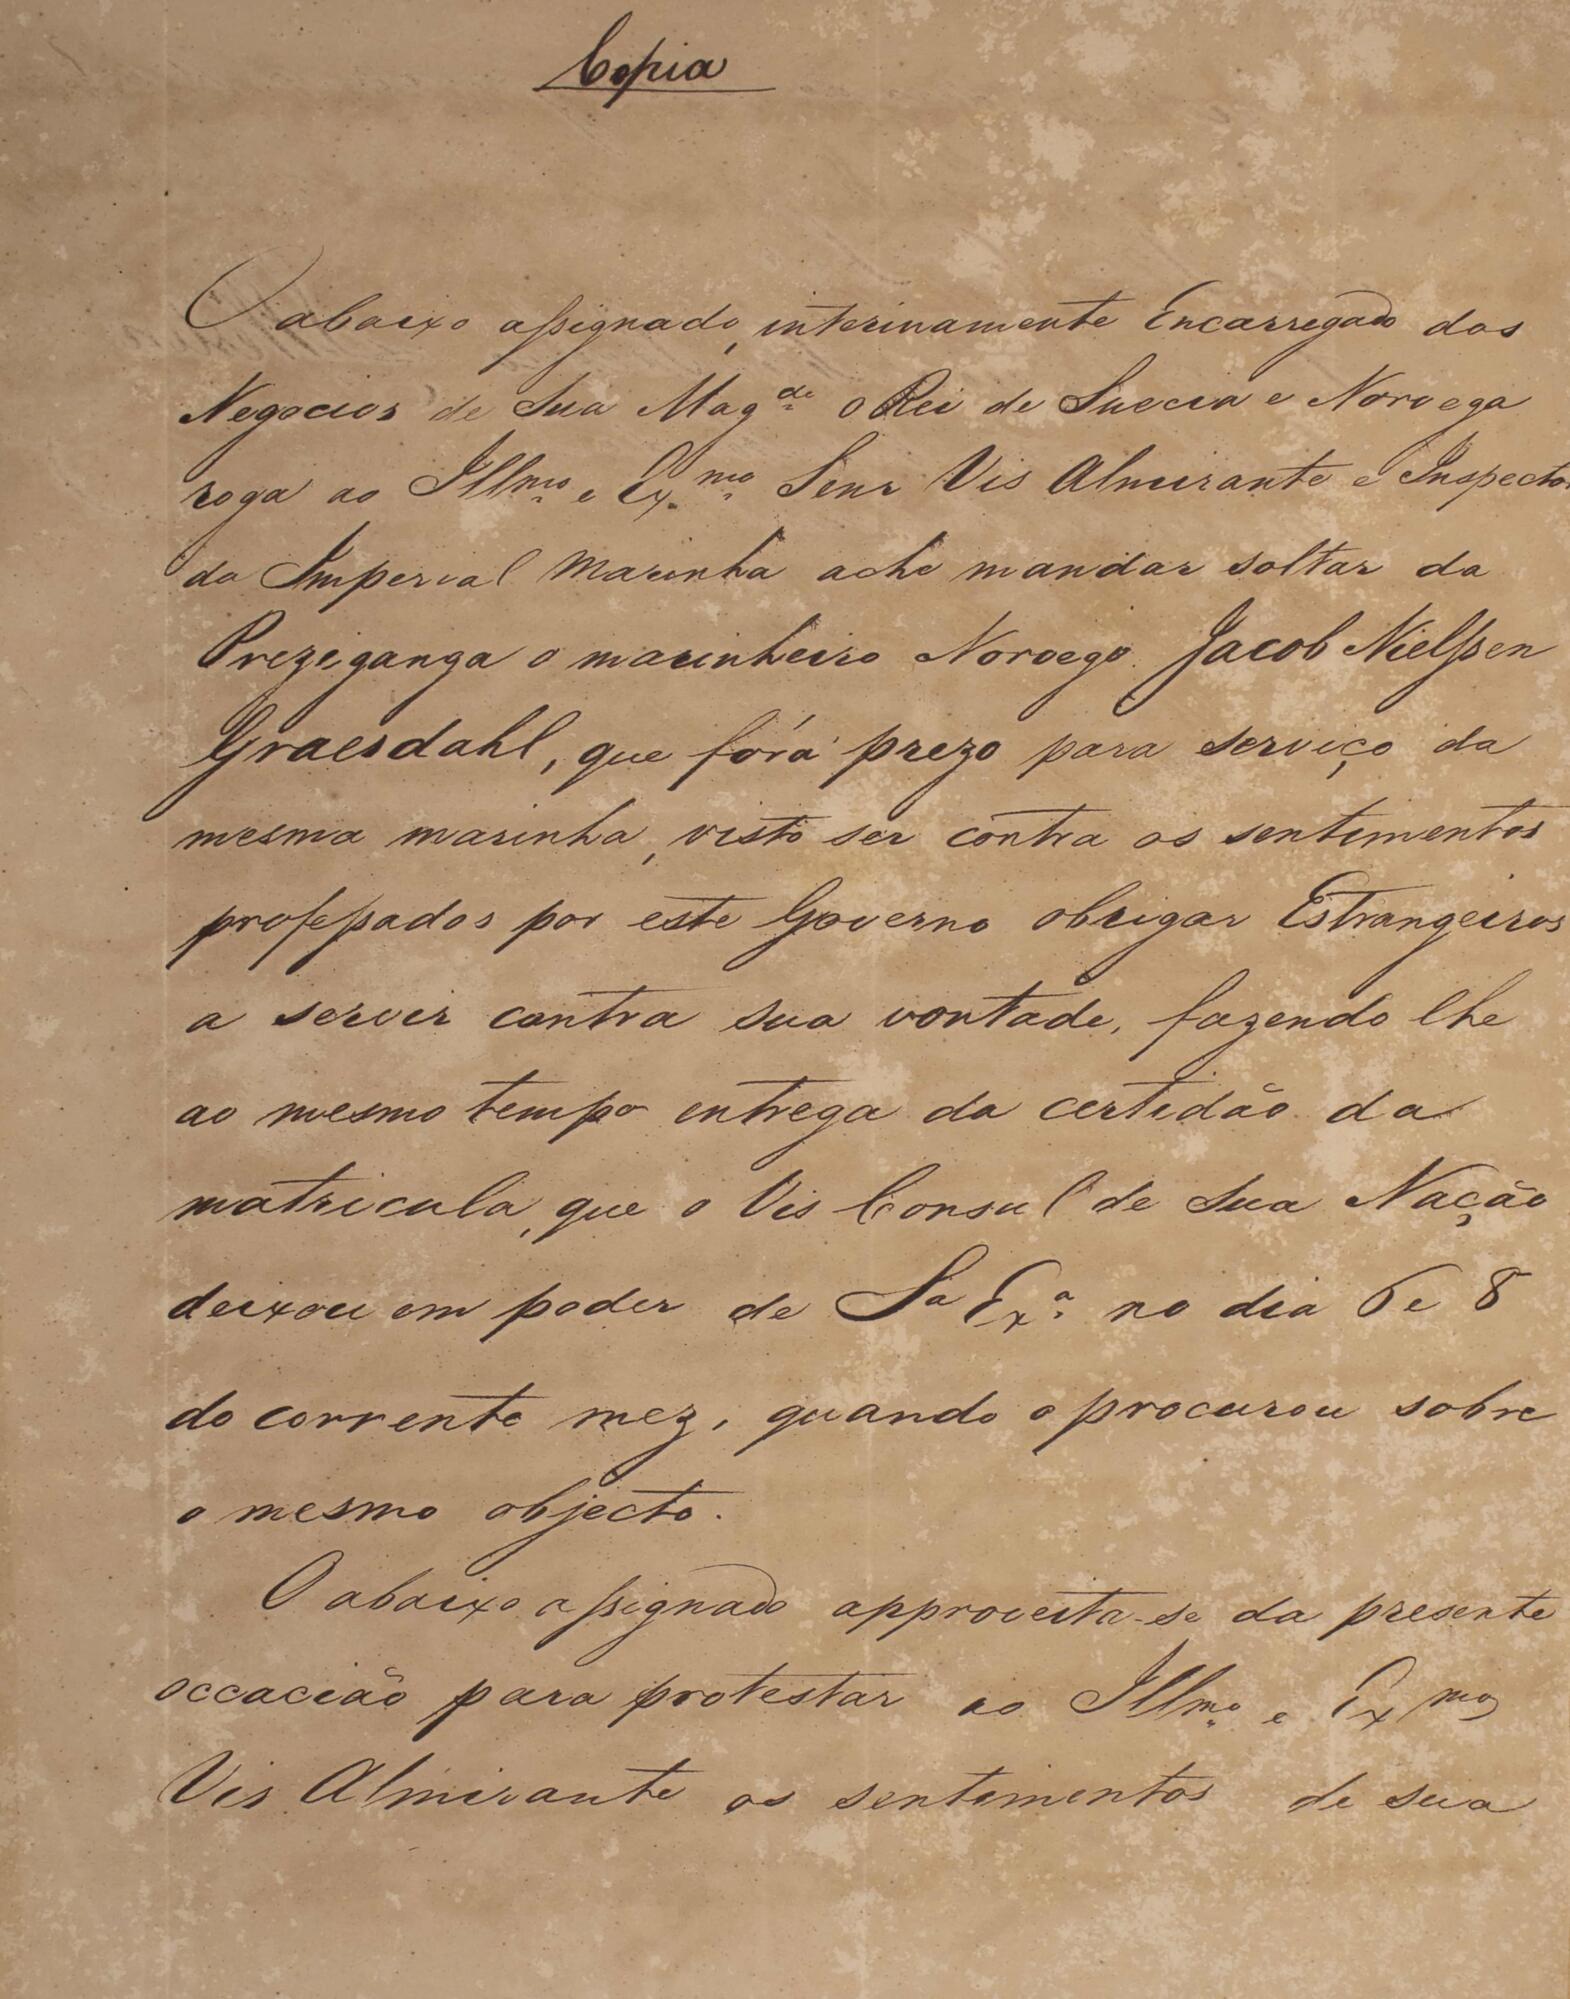 Copia
O abaixo assignado, interinamente Encarregado dos
Negocios de Sua Mag.de o Rei de Suecia e Noroega
roga ao Illmo. e Ex.mo Senr Vis Almirante e Inspector
da Imperial Marinha ache mandar soltar da
Preziganga o marinheiro Noroego Jacob Nielssen
Graesdahl, que fórá prezo para serviço da
mesma marinha, visto ser contra os sentimentos
professados por este Governo obrigar Estrangeiros
a servir contra sua vontade, fazendo lhe
ao mesmo tempo entrega da certidão da
matricula, que o Vis Consul de Sua Nação
deixou em poder de Sa Exa. no dia 6 e 8
do corrente mez, quando o procurou sobre
o mesmo objecto.
O abaixo assignado approveita-se da presente
occacião para protestar ao Illmo. e Exmo
Vis Almirante os sentimentos de sua